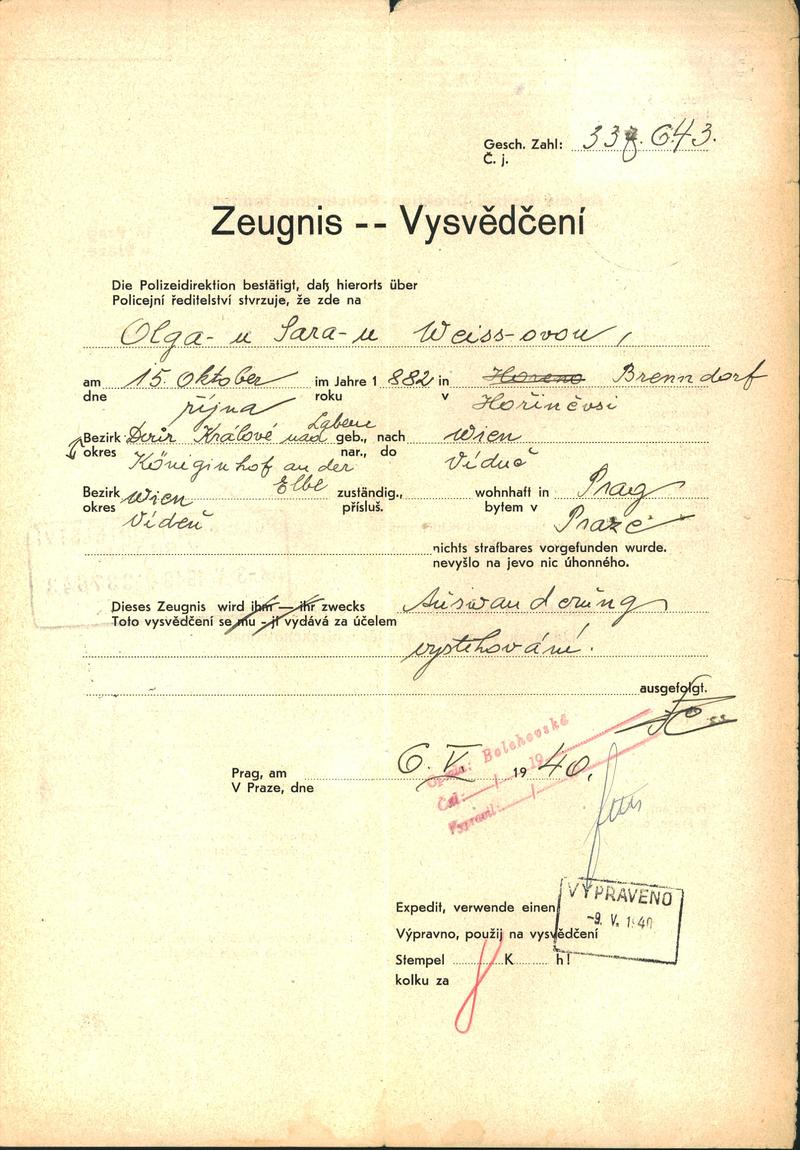 Gesch. Zahl: 337.643.
Č. j.
Zeugnis -- Vysvědčení
Die Polizeidirektion bestätigt, daß hierorts über
Policejní ředitelství stvrzuje, že zde na
Olga-u Sara-u Weiss-ovou,
am 15. Oktober im Jahre 1 882 in Horeno Brenndorf
dne října roku v Hořiněvsi
Bezirk Dvůr Králové nad Labem geb., nach Wien
okres Königinhof an der Elbe nar., do Vídně
Bezirk Wien zuständig., wohnhaft in Prag
okres Vídeň přísluš. bytem v Praze
nichts strafbares vorgefunden wurde.
nevyšlo na jevo nic úhonného.
Dieses Zeugnis wird ihm — ihr zwecks Auswanderung
Toto vysvědčení se mu - jí vydává za účelem
vystěhování.
ausgefolgt.
Prag, am 6. V. 1940.
V Praze, dne
Bolehovská
19
Četl:
Vypravil:
Expedit, verwende einen
Výpravno, použij na vysvědčení
Stempel K h!
kolku za
VYPRAVENO
-9. V. 1940